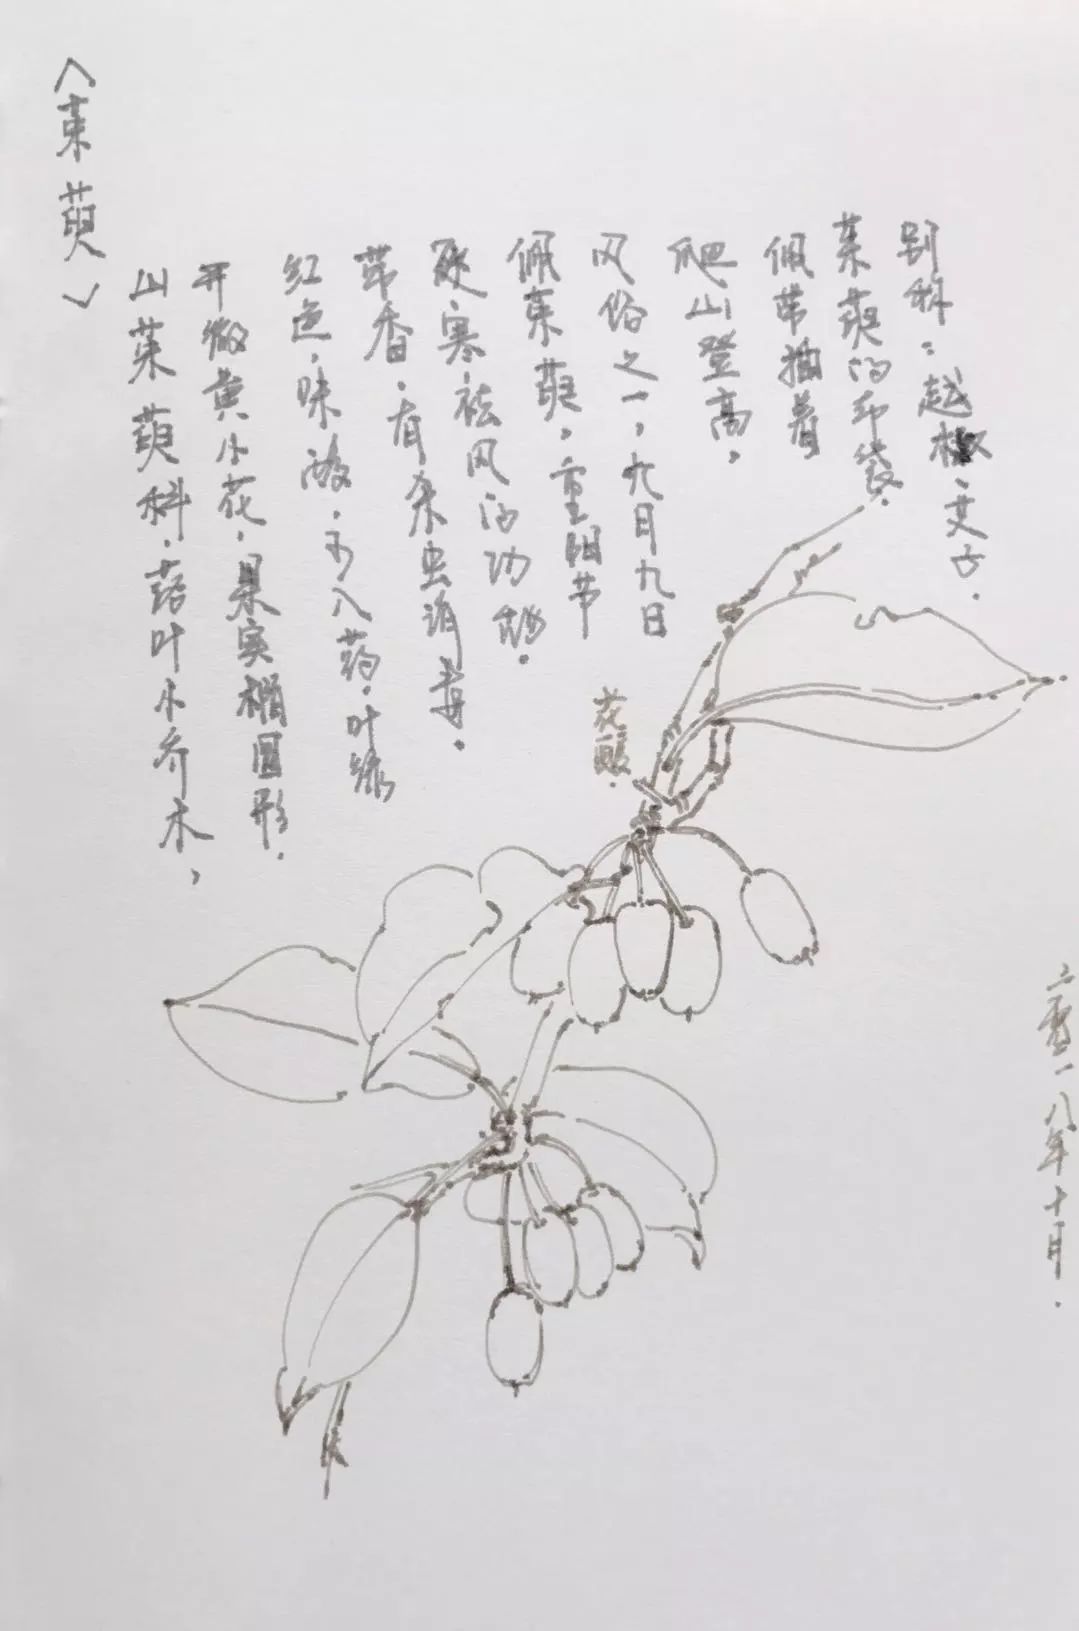 〈茱萸〉
山茱萸科.落叶小乔木,
开微黄小花.果实椭圆形.
红色.味酸.可入药.叶绿
带香.有杀虫消毒.
驱寒祛风的功效.
佩茱萸,重阳节
风俗之一,九月九日
爬山登高,
佩带插着
茱萸的布袋.
别称:越椒、艾子.
二零一八年十月.